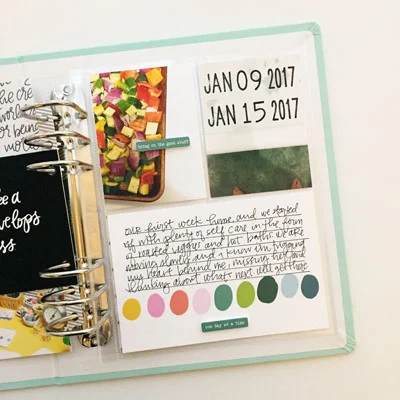 he cre
world
or being
mo
e a
velops
ss
bring on the good stuff
JAN 09 2017
JAN 15 2017
our first week home, and we started
off with plenty of self care in the form
of roasted veggies and hot baths. we are
moving slowly and i know i'm tugging
my heart behind me, missing her and
thinking about what's next. we'll get there.
one day at a time